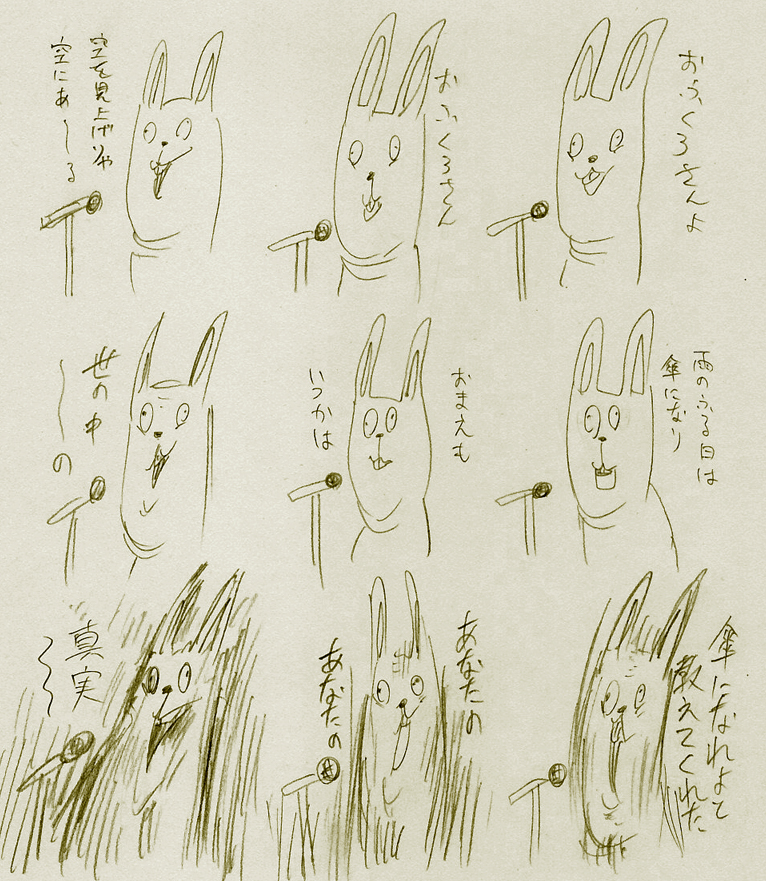 おふくろさんよ
おふくろさん
空を見上げりゃ
空にあ〜る
雨のふる日は
傘になり
おまえも
いつかは
世の中
〜の
傘になれよて
教えてくれた
あなたの
あなたの
真実
〜〜